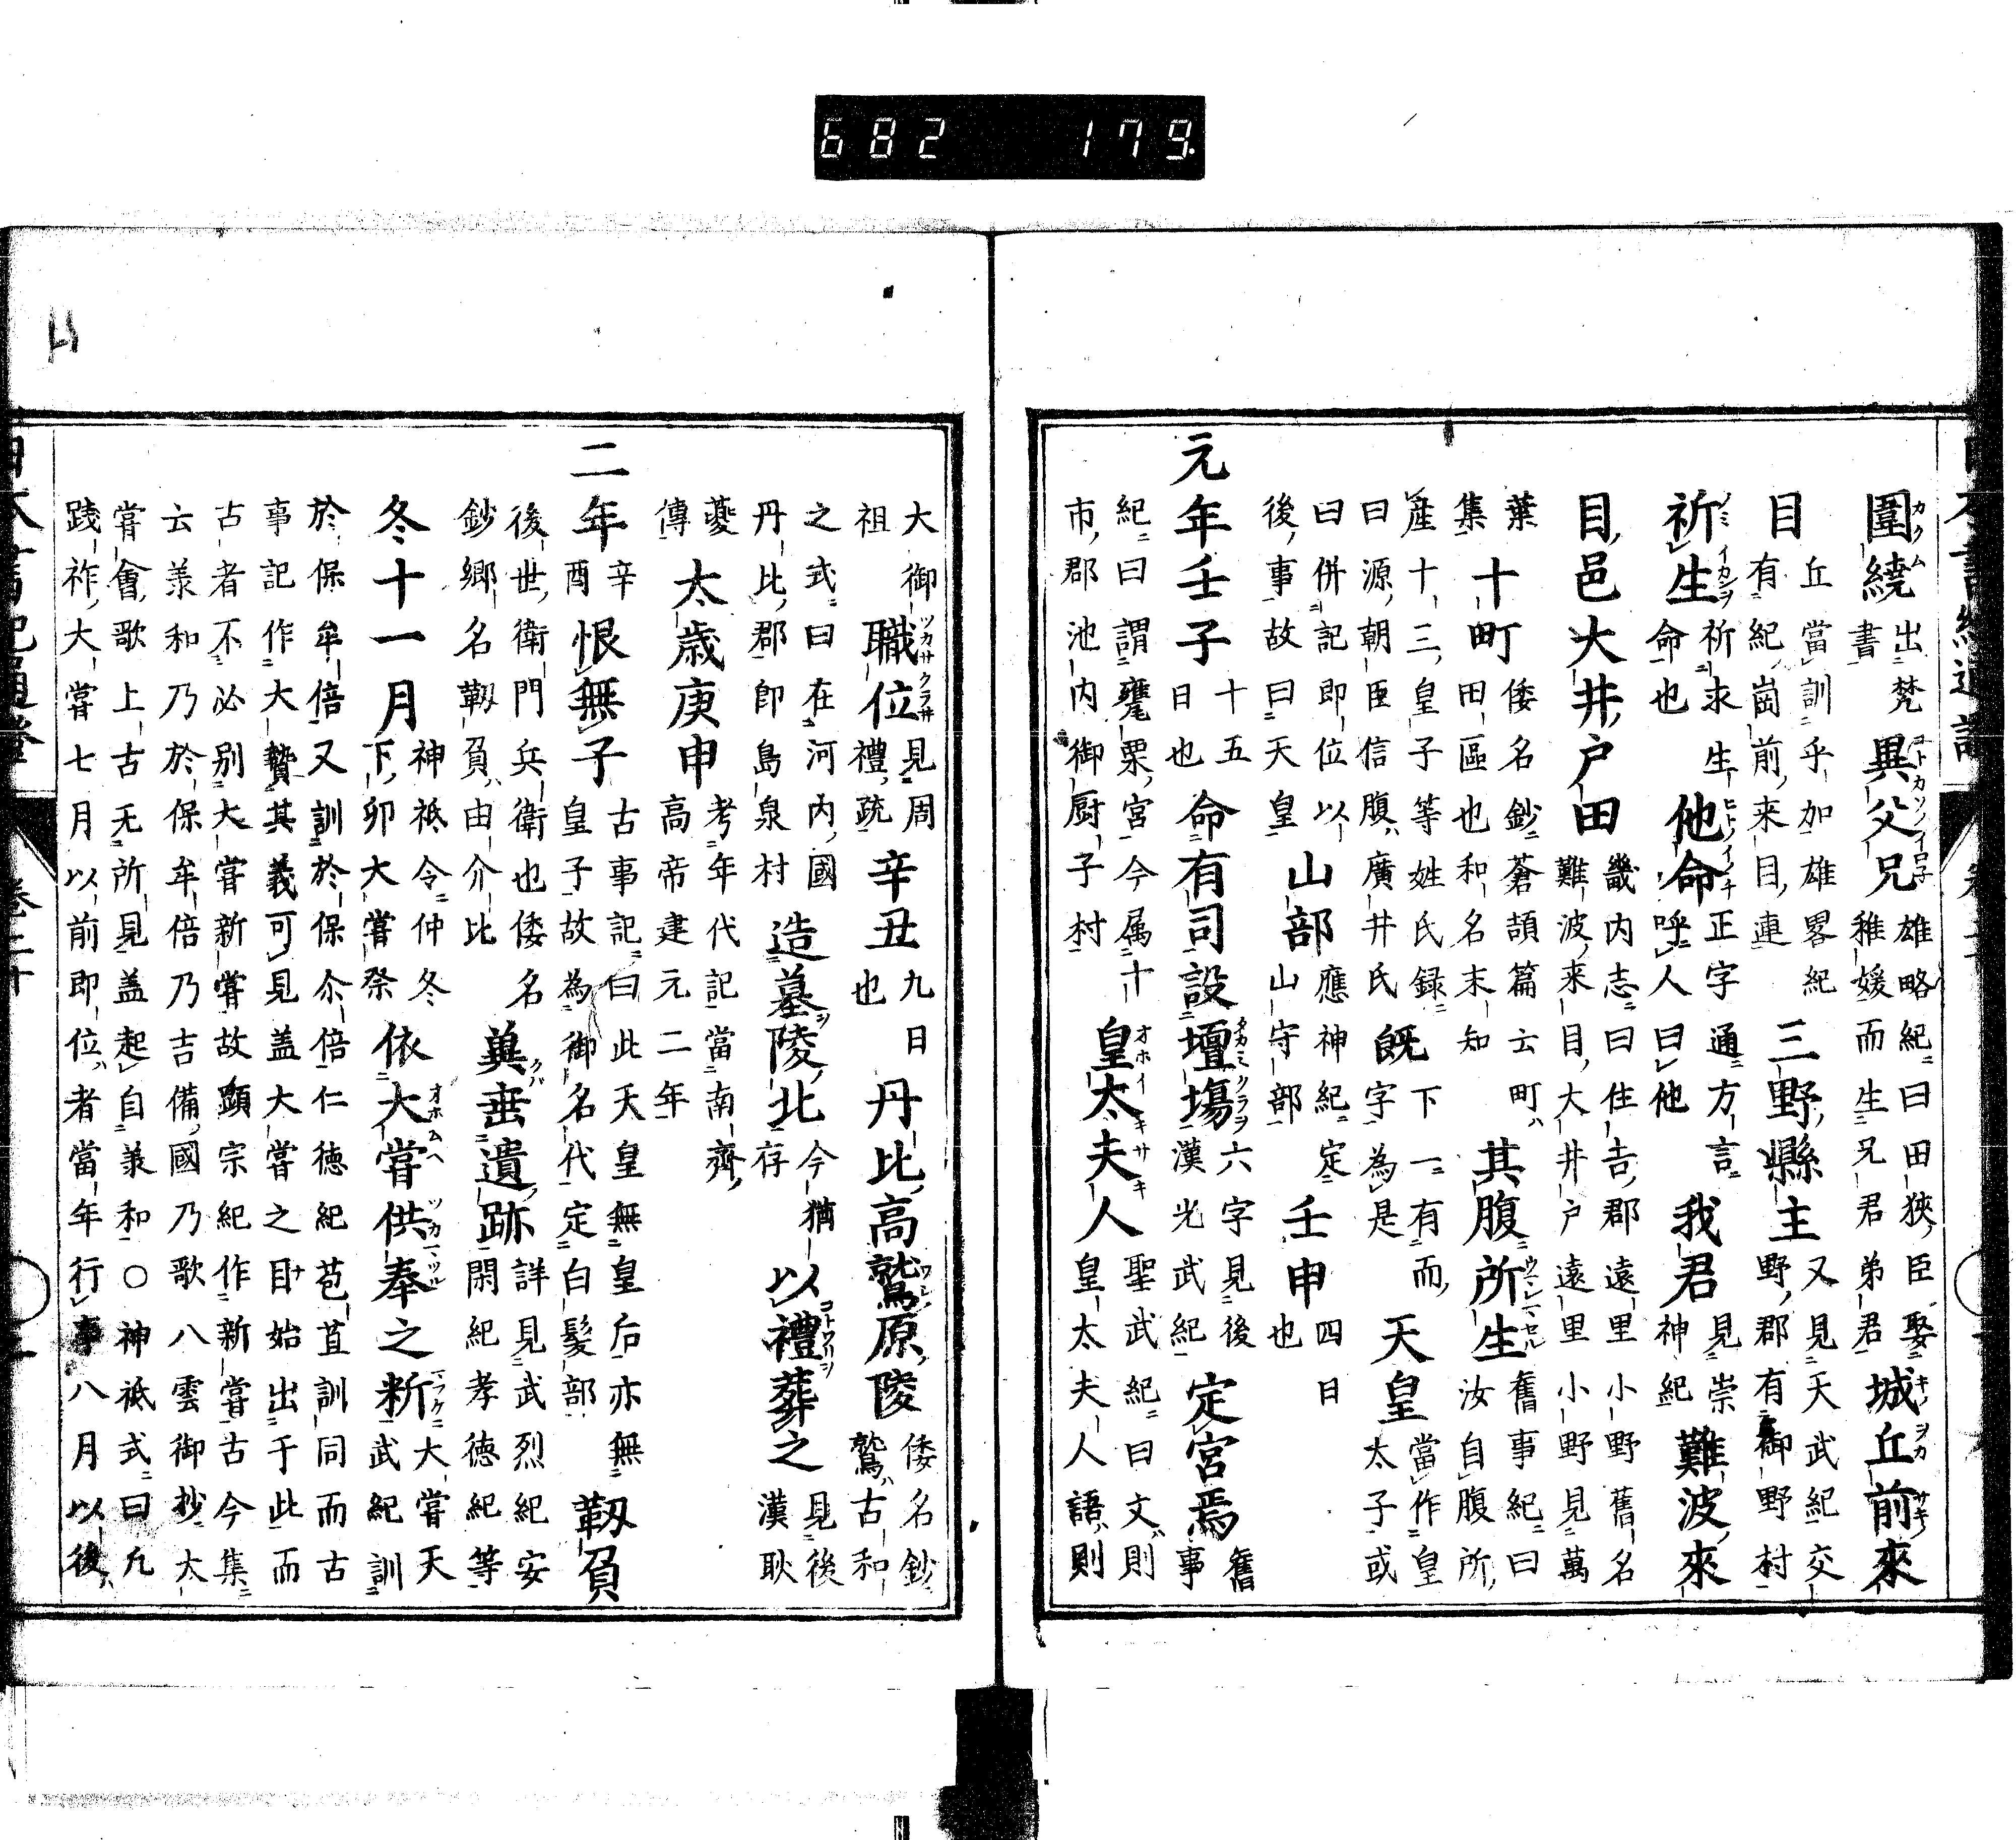 682 179
圍繞出梵書異父兄雄略紀曰田狹臣娶稚媛而生兄君弟君城丘前來
目丘當訓乎加雄畧紀有紀崗前來目連三野縣主又見天武紀交野郡有御野村
祈生祈求生命也他命正字通方言呼人曰他我君見崇神紀難波來
目邑大井戶田畿内志曰住吉郡遠里小野舊名難波來目大井戶遠里小野見萬
葉集十町倭名鈔蒼頡篇云町田區也和名末知其腹所生舊事紀曰汝自腹所
産十三皇子等姓氏録曰源朝臣信腹廣井氏既下一有而字為是天皇當作皇太子或
曰併記即位以後事故曰天皇山部應神紀定山守部壬申四日也
元年壬子十五日也命有司設壇場六字見後漢光武紀定宮焉舊事
紀曰謂甕栗宮今属十市郡池内御厨子村皇太夫人聖武紀曰文則皇太夫人語則
大御祖職位見周禮疏辛丑九日也丹比高鷲原陵倭名鈔鷲古和
之式曰在河内國丹比郡即島泉村造墓陵北今猶存以禮葬之見後漢耿
夔傳太歳庚申考年代記當南齊高帝建元二年
二年辛酉恨無子古事記曰此天皇無皇后亦無皇子故為御名代定白髮部靱負
後世衛門兵衛也倭名鈔鄉名靱負由介比冀垂遺跡詳見武烈紀安閑紀孝徳紀等
冬十一月神祇令仲冬下卯大嘗祭依大嘗供奉之料大嘗天武紀訓
於保牟倍又訓於保尒倍仁徳紀苞苴訓同而古
事記作大贄其義可見盖大嘗之目始出于此而
古者不必別大嘗新嘗故顕宗紀作新嘗古今集
云羨和乃於保牟倍乃吉備國乃歌八雲御抄大
嘗會歌上古无所見盖起自羨和○神祇式曰凢
践祚大嘗七月以前即位者當年行事八月以後